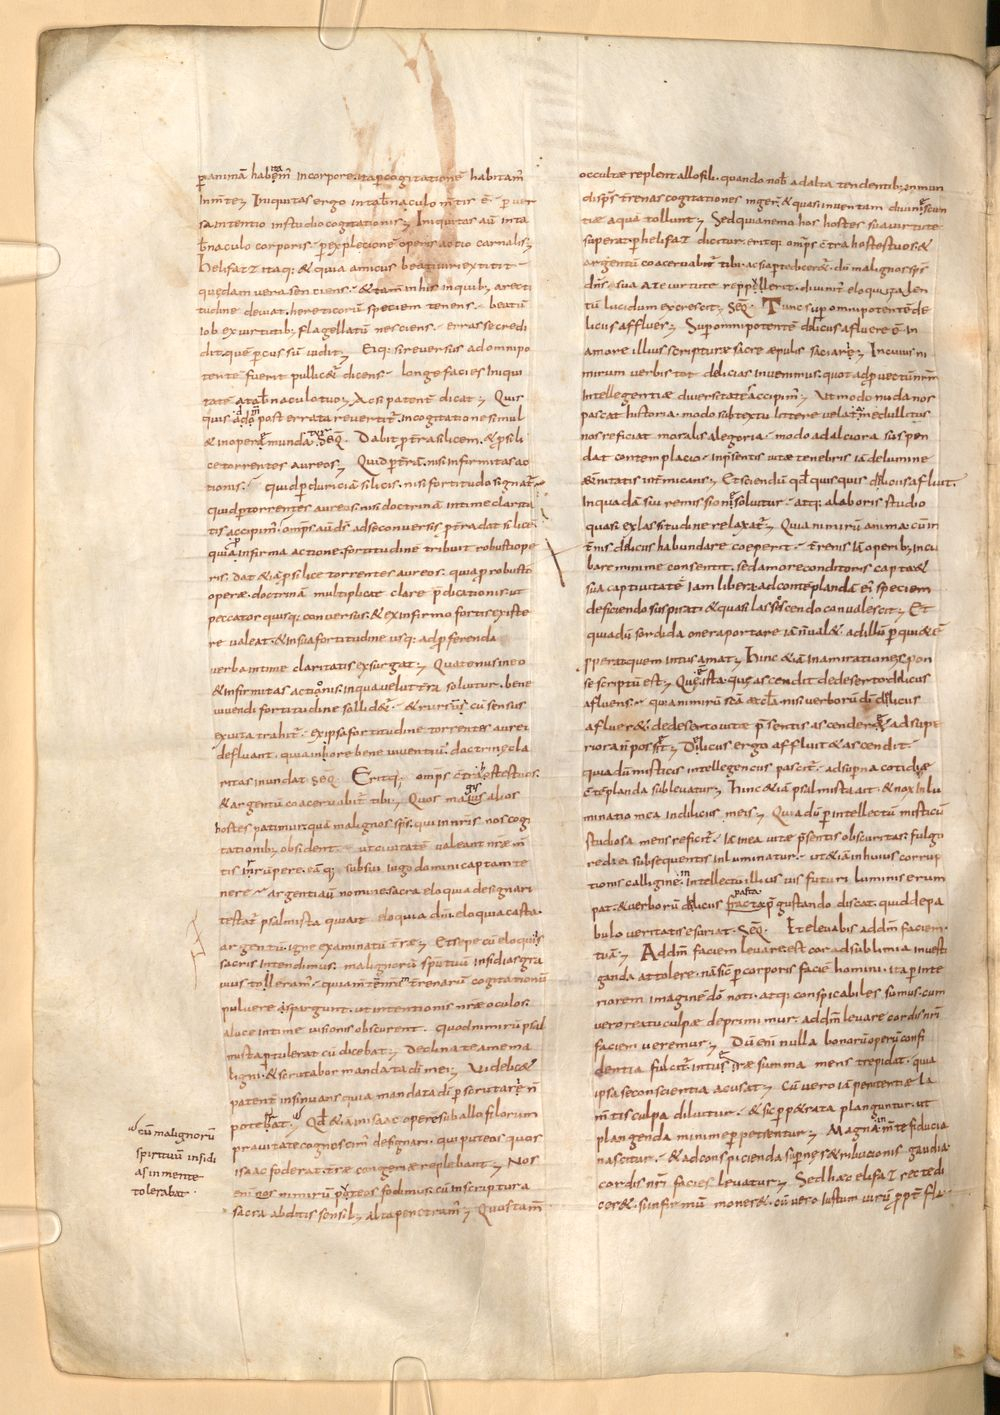 p animam habem incorpore. ita p cogitatione habitam
Inmte; Iniquitas ergo intabnaculo mtis ē. pver
sa intentio instudio cogitationis; Iniquitas aū inta
bnaculo corporis. pexplecione operis actio carnalis;
helifaz itaq; & quia amicus beati viri extitit
quedam vera sentiens. & tam inhis inquib; arecti
tudine deviat. hereticorum speciem tenens. beatū
iob ex virtutib; flagellatū nesciens. errasse credi
dit. quē pcussū vidit; Eiq; si reversus ad omnipo
tente fuerit pollicet dicens. longe facies iniqui
tate a tabnaculo tuo; Ac si patent dicat; Quis
quis ad dm post errata revertit. Incogitatione simul
& in opere mundat. Seq. Dabit p tra silicem. & p sili
ce torrentes aureos; Quid p trā. nisi infirmitas ac
tionis. quid p duriciā silicis. nisi fortitudo signat.
quid p torrentes aureos. nisi doctrinā intime clarita
tis accipim. omps aū ds ad se conversis p tra dat silice.
quia p infirma actione. fortitudinē tribuit robusti ope
ris. dat & iā p silice torrentes aureos. quia p robusti
operæ. doctrinā multiplicat clare pdicationis. ut
peccator quisq; conversus. & ex infirmo fortis existe
re valeat. & in sua fortitudine usq; ad pferenda
verba intime claritatis exsurgat; Quatenus in eo
& infirmitas actionis. in qua velut tra solvitur. bene
vivendi fortitudine sollid&. & rursus cū sensus
exuta trahit. ex ipsa fortitudine torrentes aurei
defluant. quia in hore bene viventiū. doctrine cla
ritas inundat. Seq. Erit q; omps ctra hostes tuos.
& argentū coacervabit tibi; Quos magis alios
hostes patimur. quā malignos sps. qui in nris nos cogi
tationib; obsident. ut civitatē valeant nræ m
tis inrupere. eaq; sub sui iugo dominii captam te
nere. argenti aū nomine sacra eloquia designari
testat psalmista qui ait. eloquia dni. eloquia casta.
argentū. igne examinatū tre; Et sepe cū eloquiis
sacris intendimus. malignorū spirituū insidias gra
vius tolleram. quia m ti nris terrenarū cogitationū
pulvere aspargunt. ut intentionis nræ oculos.
a luce intime visionis obscurent. Quod nimirū psal
mista ptulerat cū dicebat; Declinate a me ma
ligni. & scrutabor mandata di mei; Videlic&
patent insinuans quia mandata di pscrutare n
poterat. Qd & iā in isaac opere sub allofilorum
pravitate cognoscim designari. qui puteos quos
isaac foderat. træ congerie replebant; Nos
eni hos nimirū puteos fodimus. cū in scriptura
sacra abditis sensib; alta penetram; Quos tam
cū malignorū
spirituū insidi
as in mente
tolerabat.
occultæ replent allofili. quando nob ad alta tendentib; inmun
di sps trenas cogitationes inger. & quasi inventam divinæ scien
tiæ aquā tollunt; Sed quia nemo hos hostes sua virtute
superat. p helifaz dicitur. eritq; omps ctra hostes tuos. &
argentū coacervabit tibi. ac si apta dicer&. dū malignos sps
dns sua a te virtute reppulerit. divini eloquii talen
tū lucidum excrescit; Seq. Tunc sup omnipotente de
liciis afflues; Sup omnipotente deliciis afluere ē. In
amore illius scripturæ sacre æpulis saciare; In cuius ni
mirum verbis tot delicias invenimus. quot ad pvectū nrm
intellegentiæ diversitates accipim; Ut modo nuda nos
pascat historia. modo sub textu littere velata. medullitus
nos reficiat moralis alegoria. modo ad alciora suspen
dat contemplacio. in psentis vitæ tenebris iā de lumine
æternitatis intermicans; Et sciendū qd quisquis deliciis afluit.
In quadā sui remissione solvitur. atq; a laboris studio
quasi ex lassitudine relaxat; Quia nimirū anima. cū in
tnis deliciis habundare coeperit. trenis iā operib; incu
bare minime consentit. sed amore conditoris capta. &
sua captivitate iam libera. ad contēplandā ei speciem
deficiendo suspirat. & quasi lassescendo convalescit; Et
quia dū sordida onera portare iā n val&. ad illū p qui&ē
pperat quem intus amat; hinc & iā in amiratione spon
se scriptū est; Que ē ista. que ascendit de deserto deliciis
afluens. quia nimirū scā æccla. nisi verborū di deliciis
afluer&. de deserto vitæ psentis ascendere ad supe
riora n possit; Deliciis ergo affluit & ascendit.
quia dū misticis intellegenciis pascit. ad superna cotidiæ
ctēplanda sublevatur; hinc & iā psalmista ait. & nox inlu
minatio mea in deliciis meis; Quia dū p intellectū misticū
studiosa mens reficit. iā in ea vitæ psentis obscuritas. fulgo
re diei subsequentis inluminatur. ut & iā in huius corrup
tionis calligine. in intellectū illius vis futuri luminis erum
pat. & verborū deliciis pasta pgustando discat. quid de pa
bulo veritatis esuriat. Seq. Et elevabis ad dm faciem
tuā. Ad dm faciem levare. est cor ad sublimia investi
ganda attolere. nā sic p corporis facie homini. ita p inte
riorem imagine do noti. atq; conspicabiles sumus. cum
vero reatu culpæ deprimimur. ad dm levare cordis nri
faciem veremur; Dū eni nulla bonorū operū confi
dentia fulcit. intueri summa mens trepidat. quia
ipsa se conscientia acusat; Cū vero iā penitentiæ la
mtis culpa diluitur. & sic ppetrata planguntur. ut
plangenda minime ppetrentur; Magna in mte fiducia
nascitur. & ad conspicienda supernes retributionis gaudia.
cordis nri facies levatur; Sed hæc elifaz recte di
cer&. si infirmū moner&. cū vero iustum virū ppt fla